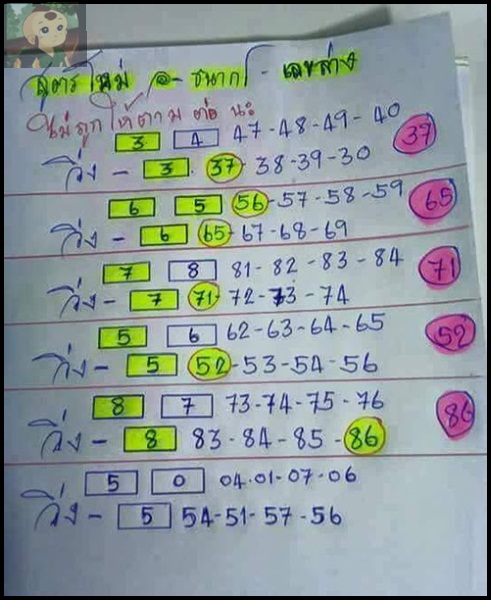 สูตรใหม่ @- ธนากร - เลขล่าง
ไม่ถูกให้ตามต่อนะ
3 4 47-48-49-40
วิ่ง - 3. 37-38-39-30 37
6 5 56-57-58-59
วิ่ง - 6 65-67-68-69 65
7 8 81-82-83-84
วิ่ง - 7 71-72-73-74 71
5 6 62-63-64-65
วิ่ง - 5 52-53-54-56 52
8 7 73-74-75-76
วิ่ง - 8 83-84-85-86 86
5 0 04.01-07-06
วิ่ง - 5 54-51-57-56